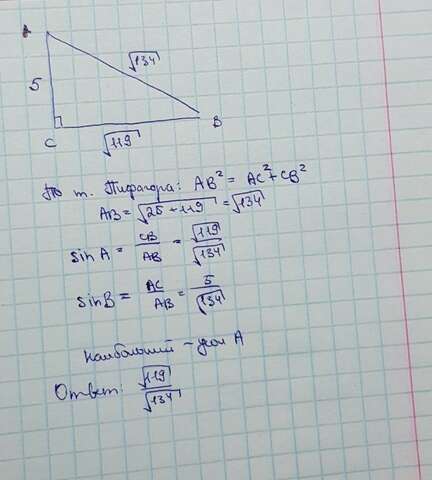 A
5
√134
C
√119
B
По т. Пифагора: AB² = AC² + CB²
AB = √25 + 119 = √134
sin A = CB/AB = √119/√134
sin B = AC/AB = 5/√134
Наибольший - угол A
Ответ: √119/√134